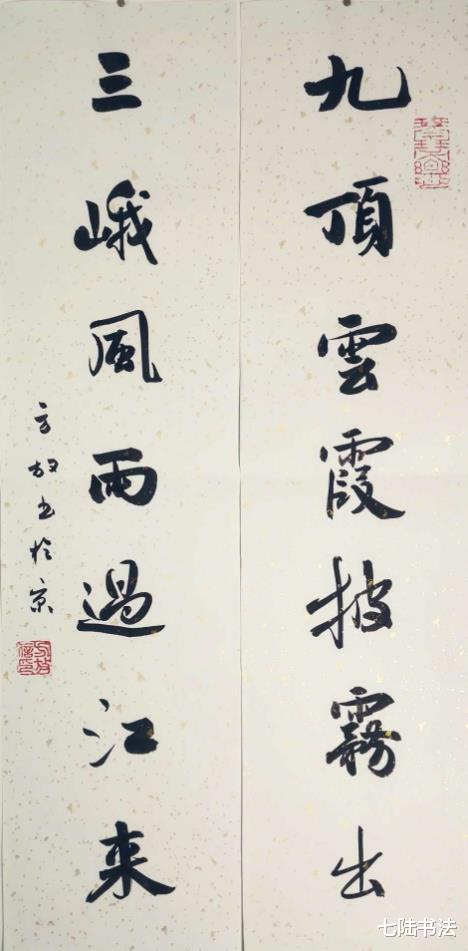 九頂雲霞披霧出
三峨風雨過江来
方放书於京
七陆书法